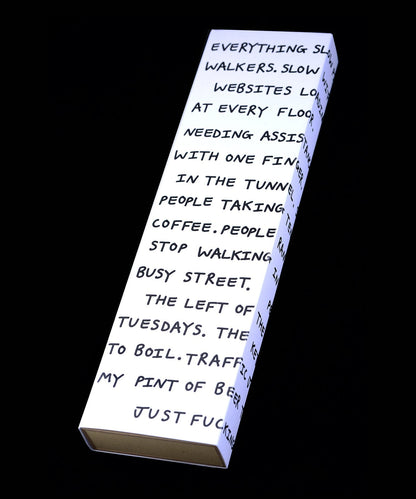 EVERYTHING SLOW
WALKERS. SLOW
WEBSITES LOADING
AT EVERY FLOOR.
NEEDING ASSISTANCE
WITH ONE FINGER.
IN THE TUNNEL.
PEOPLE TAKING
COFFEE. PEOPLE
STOP WALKING
BUSY STREET.
THE LEFT OF
TUESDAYS. THE
TO BOIL. TRAFFIC
MY PINT OF BEER
JUST FUCKING